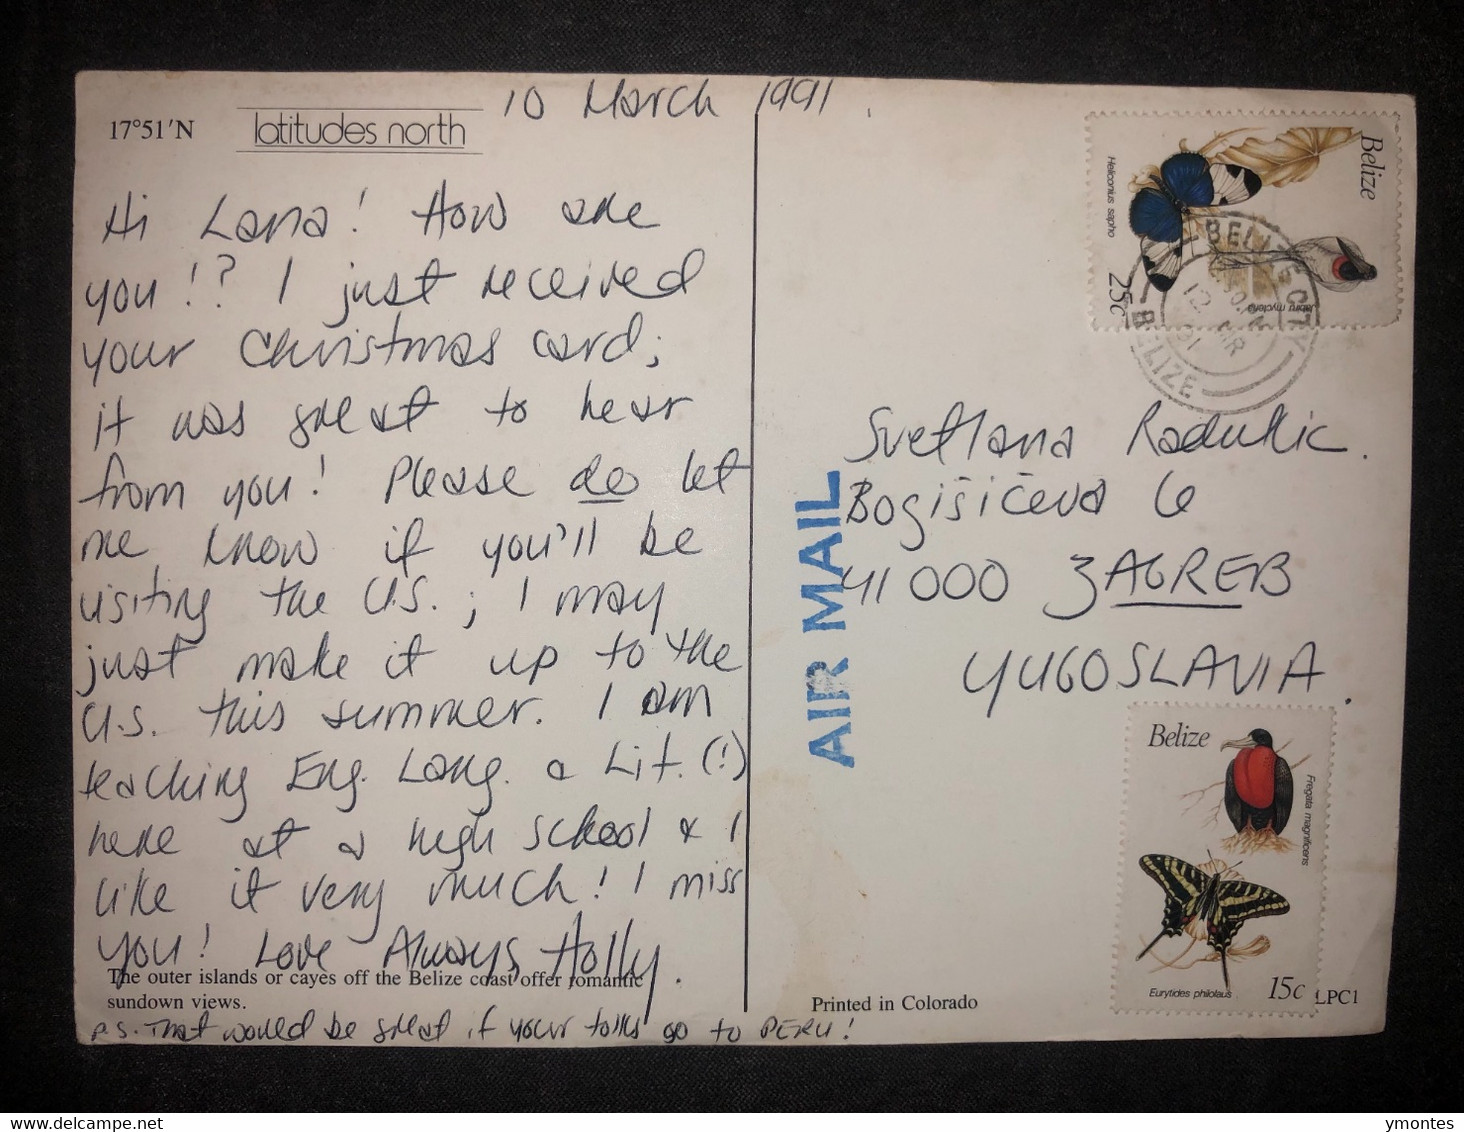 10 March 1991.
17°51'N
latitudes north
Hi Lana! How are
you!? I just received
your Christmas card;
it was great to hear
from you! Please do let
me know if you'll be
visiting the U.S.; I may
just make it up to the
U.S. this summer. I am
teaching Eng. Lang. & Lit. (!)
here at a high school & I
like it very much! I miss
you! Love Always, Holly.
The outer islands or cayes off the Belize coast offer romantic
sundown views.
P.S. That would be great if your folks go to PERU!
AIR MAIL
Svetlana Radullic
Bogišićeva 6
41 000 ZAGREB
YUGOSLAVIA.
Printed in Colorado
LPC1
Belize
Heliconius sapho
Jabiru mycteria
25c
BELIZE CITY
12 MR
91
BELIZE
Belize
Fregata magnificens
Eurytides philolaus
15c
ymontes